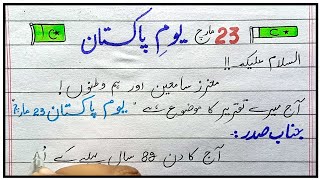 23 مارچ یومِ پاکستان
السلام علیکم !!
معزز سامعین اور ہم وطنوں!
آج میرے تقریر کا موضوع ہے " یومِ پاکستان 23 مارچ"
جنابِ صدر:
آج کا دن 89 سال پہلے کے